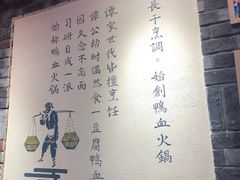 長于烹調。始創鴨血火鍋
譚家世代皆擅烹飪
譚公幼時偶然食一豆腐鴨血
因久念不忘而
習研自成一派
始粹鴨血火鍋